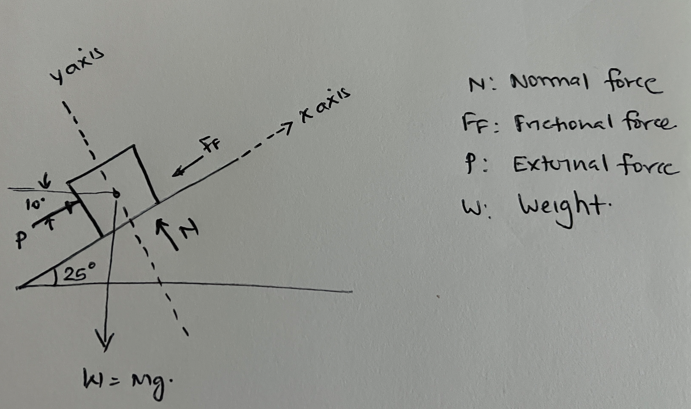 y axis
x axis
FF
10°
P
N
25°
W = Mg.
N: Normal force
FF: Frictional force
P: External force
W: Weight.